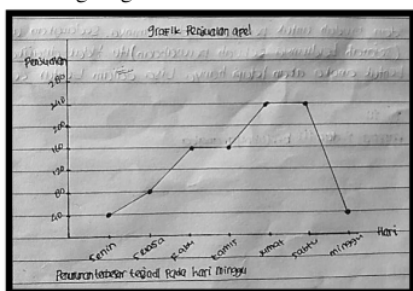 Grafik Penjualan apel
Penjualan
280
240
200
160
120
80
40
Senin
Selasa
Rabu
Kamis
Jumat
Sabtu
Minggu
Hari
Penurunan terbesar terjadi Pada hari minggu